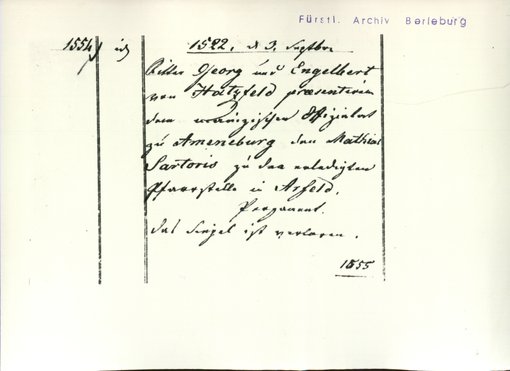 Fürstl. Archiv Berleburg
1554
1522, d 3. Septbr.
Ritter Georg und Engelbert
von Hatzfeld praesentiren
dem mainzischen Offizialat
zu Ameneburg den Mathias
Sartoris zu der erledigten
Pfarrstelle in Arfeld.
Pergament.
das Siegel ist verloren.
1555